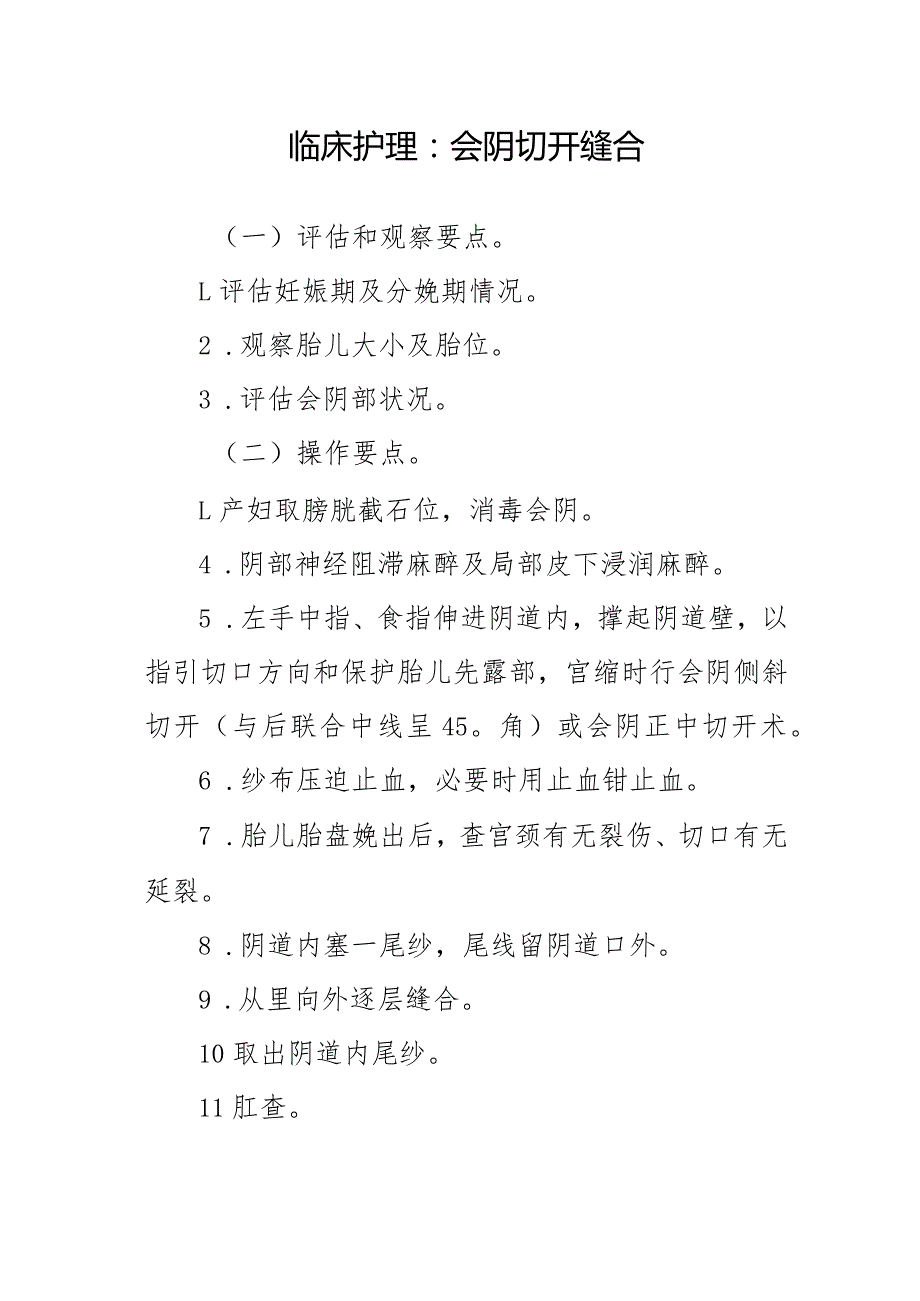 临床护理：会阴切开缝合
（一）评估和观察要点。
L评估妊娠期及分娩期情况。
2 .观察胎儿大小及胎位。
3 .评估会阴部状况。
（二）操作要点。
L产妇取膀胱截石位，消毒会阴。
4 .阴部神经阻滞麻醉及局部皮下浸润麻醉。
5 .左手中指、食指伸进阴道内，撑起阴道壁，以
指引切口方向和保护胎儿先露部，宫缩时行会阴侧斜
切开（与后联合中线呈45。角）或会阴正中切开术。
6 .纱布压迫止血，必要时用止血钳止血。
7 .胎儿胎盘娩出后，查宫颈有无裂伤、切口有无
延裂。
8 .阴道内塞一尾纱，尾线留阴道口外。
9 .从里向外逐层缝合。
10取出阴道内尾纱。
11肛查。